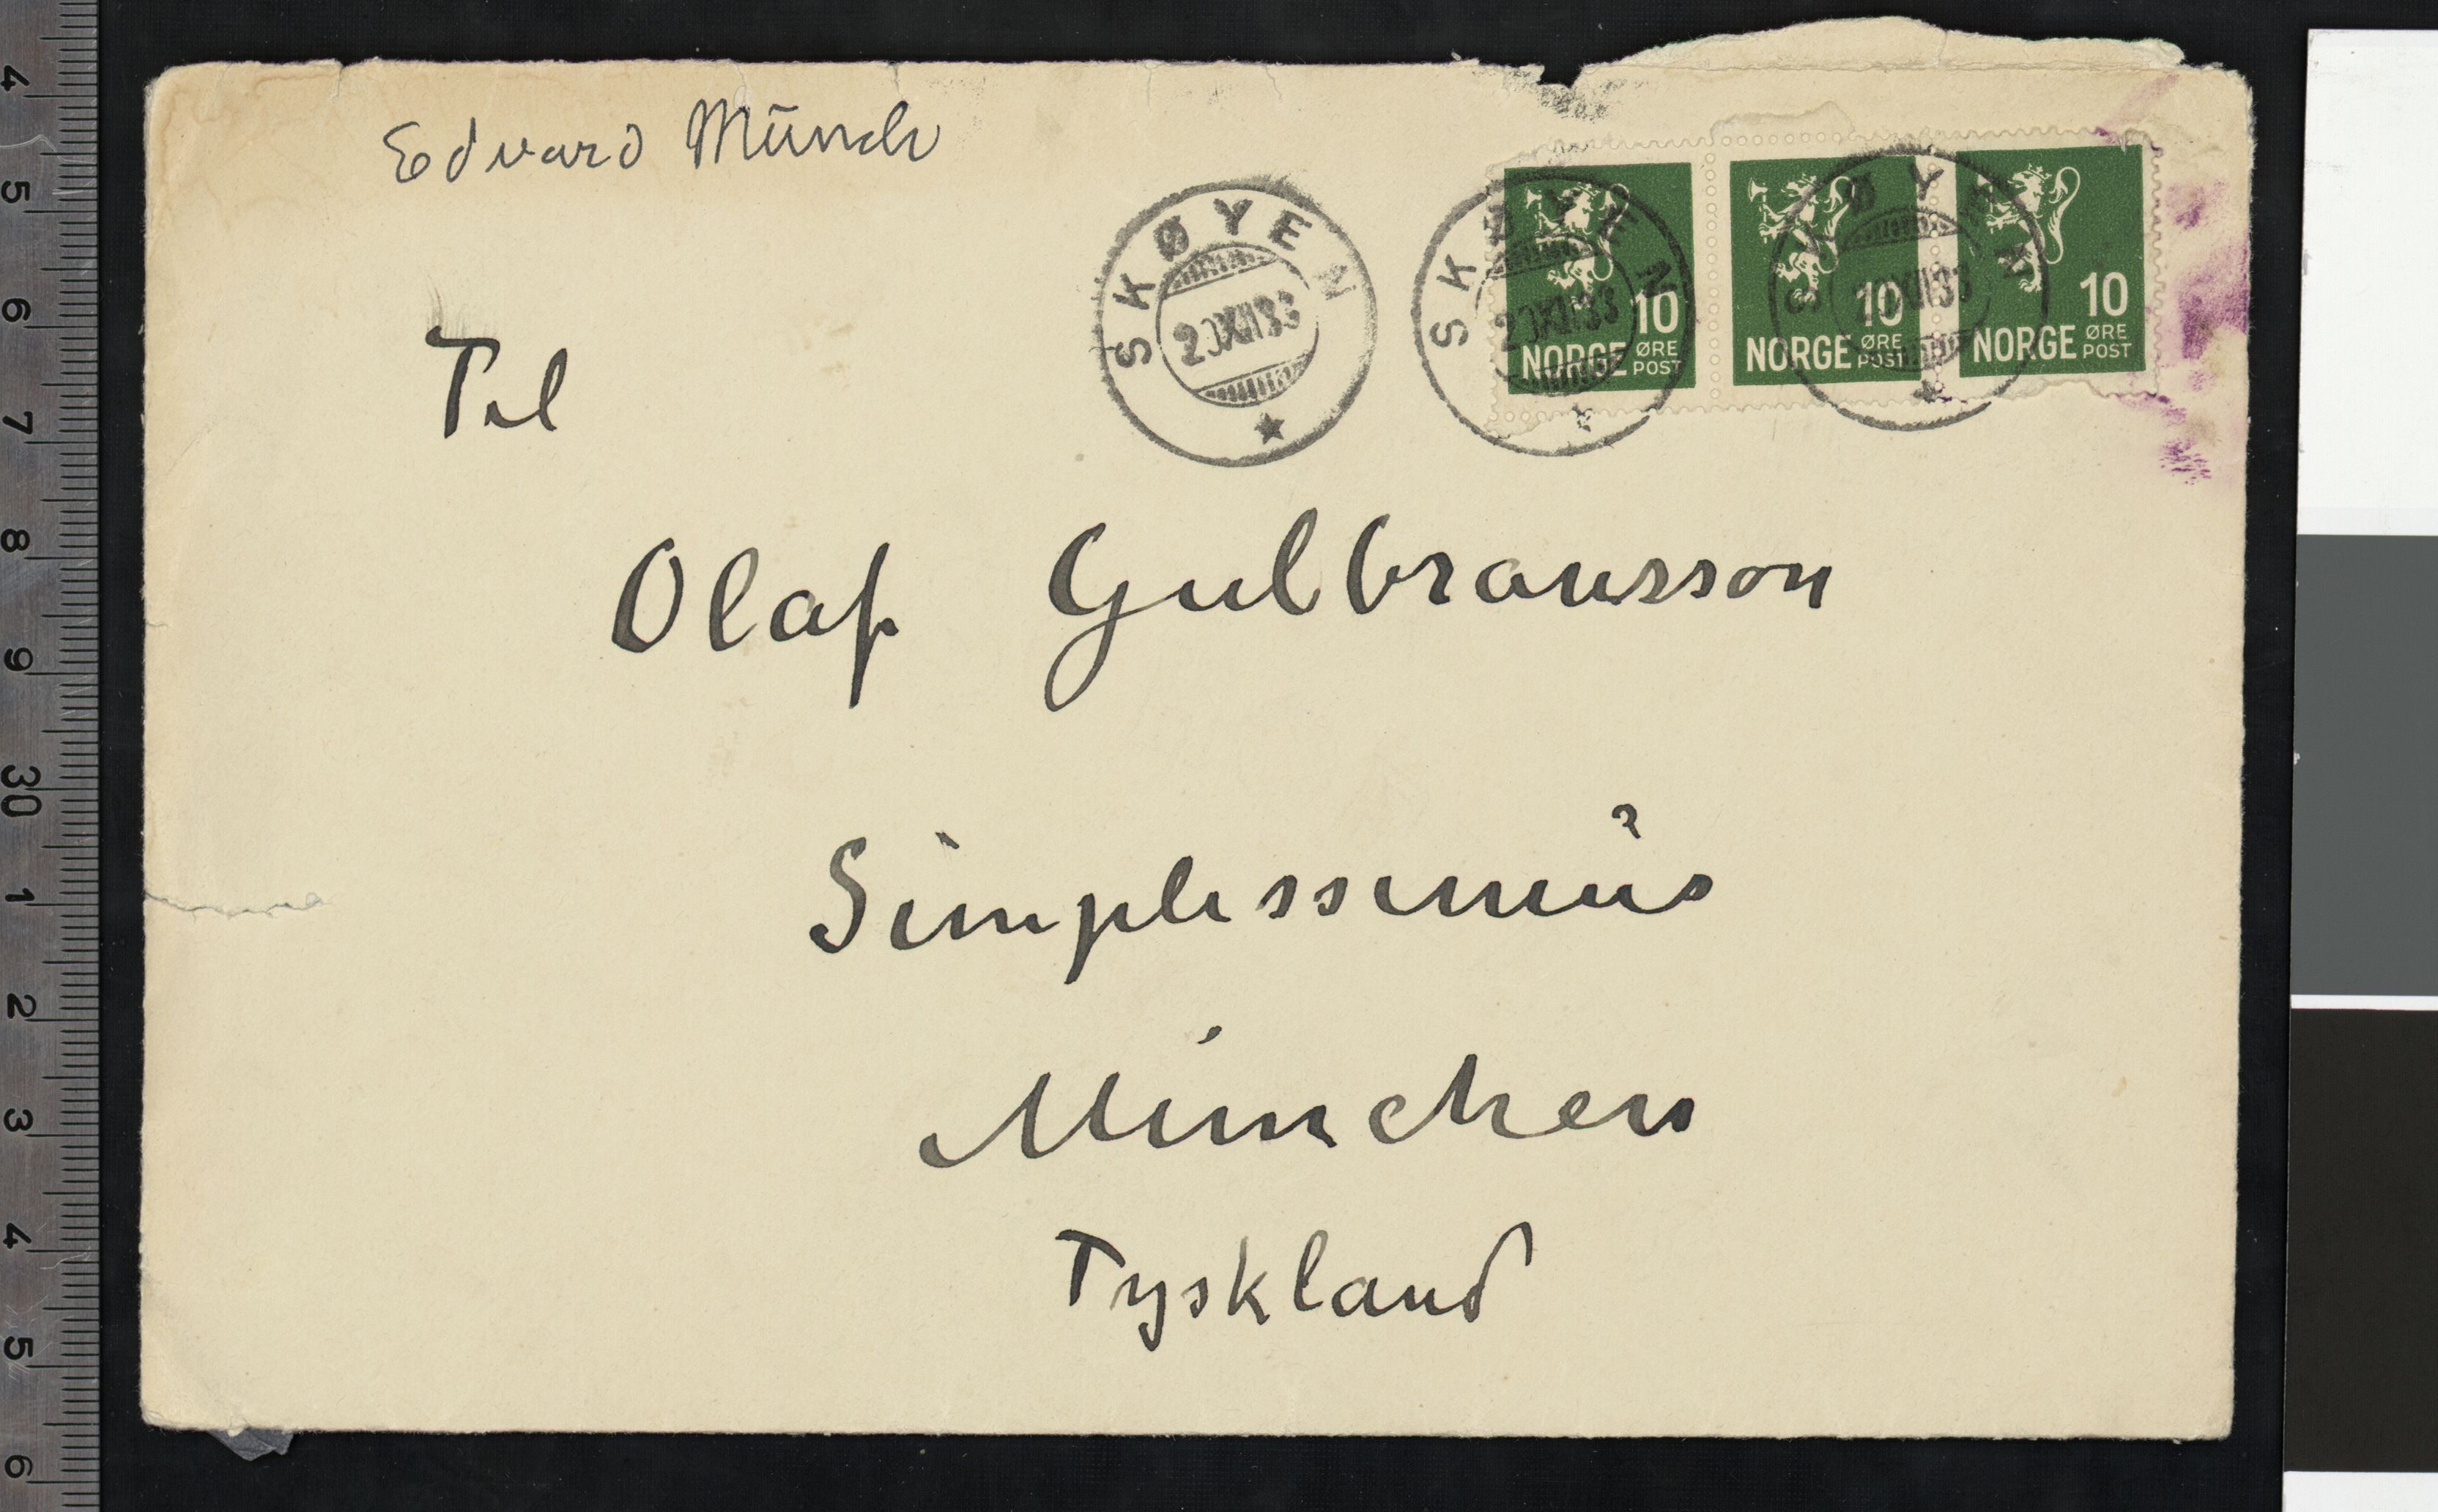 Edvard Munch
SKØYEN
20 XII 33
SKØYEN
20 XII 33
SKØYEN
20 XII 33
10
NORGE ØRE POST
10
NORGE ØRE POST
10
NORGE ØRE POST
Til
Olaf Gulbransson
Simplissimus
München
Tyskland
4
5
6
7
8
9
30
1
2
3
4
5
6